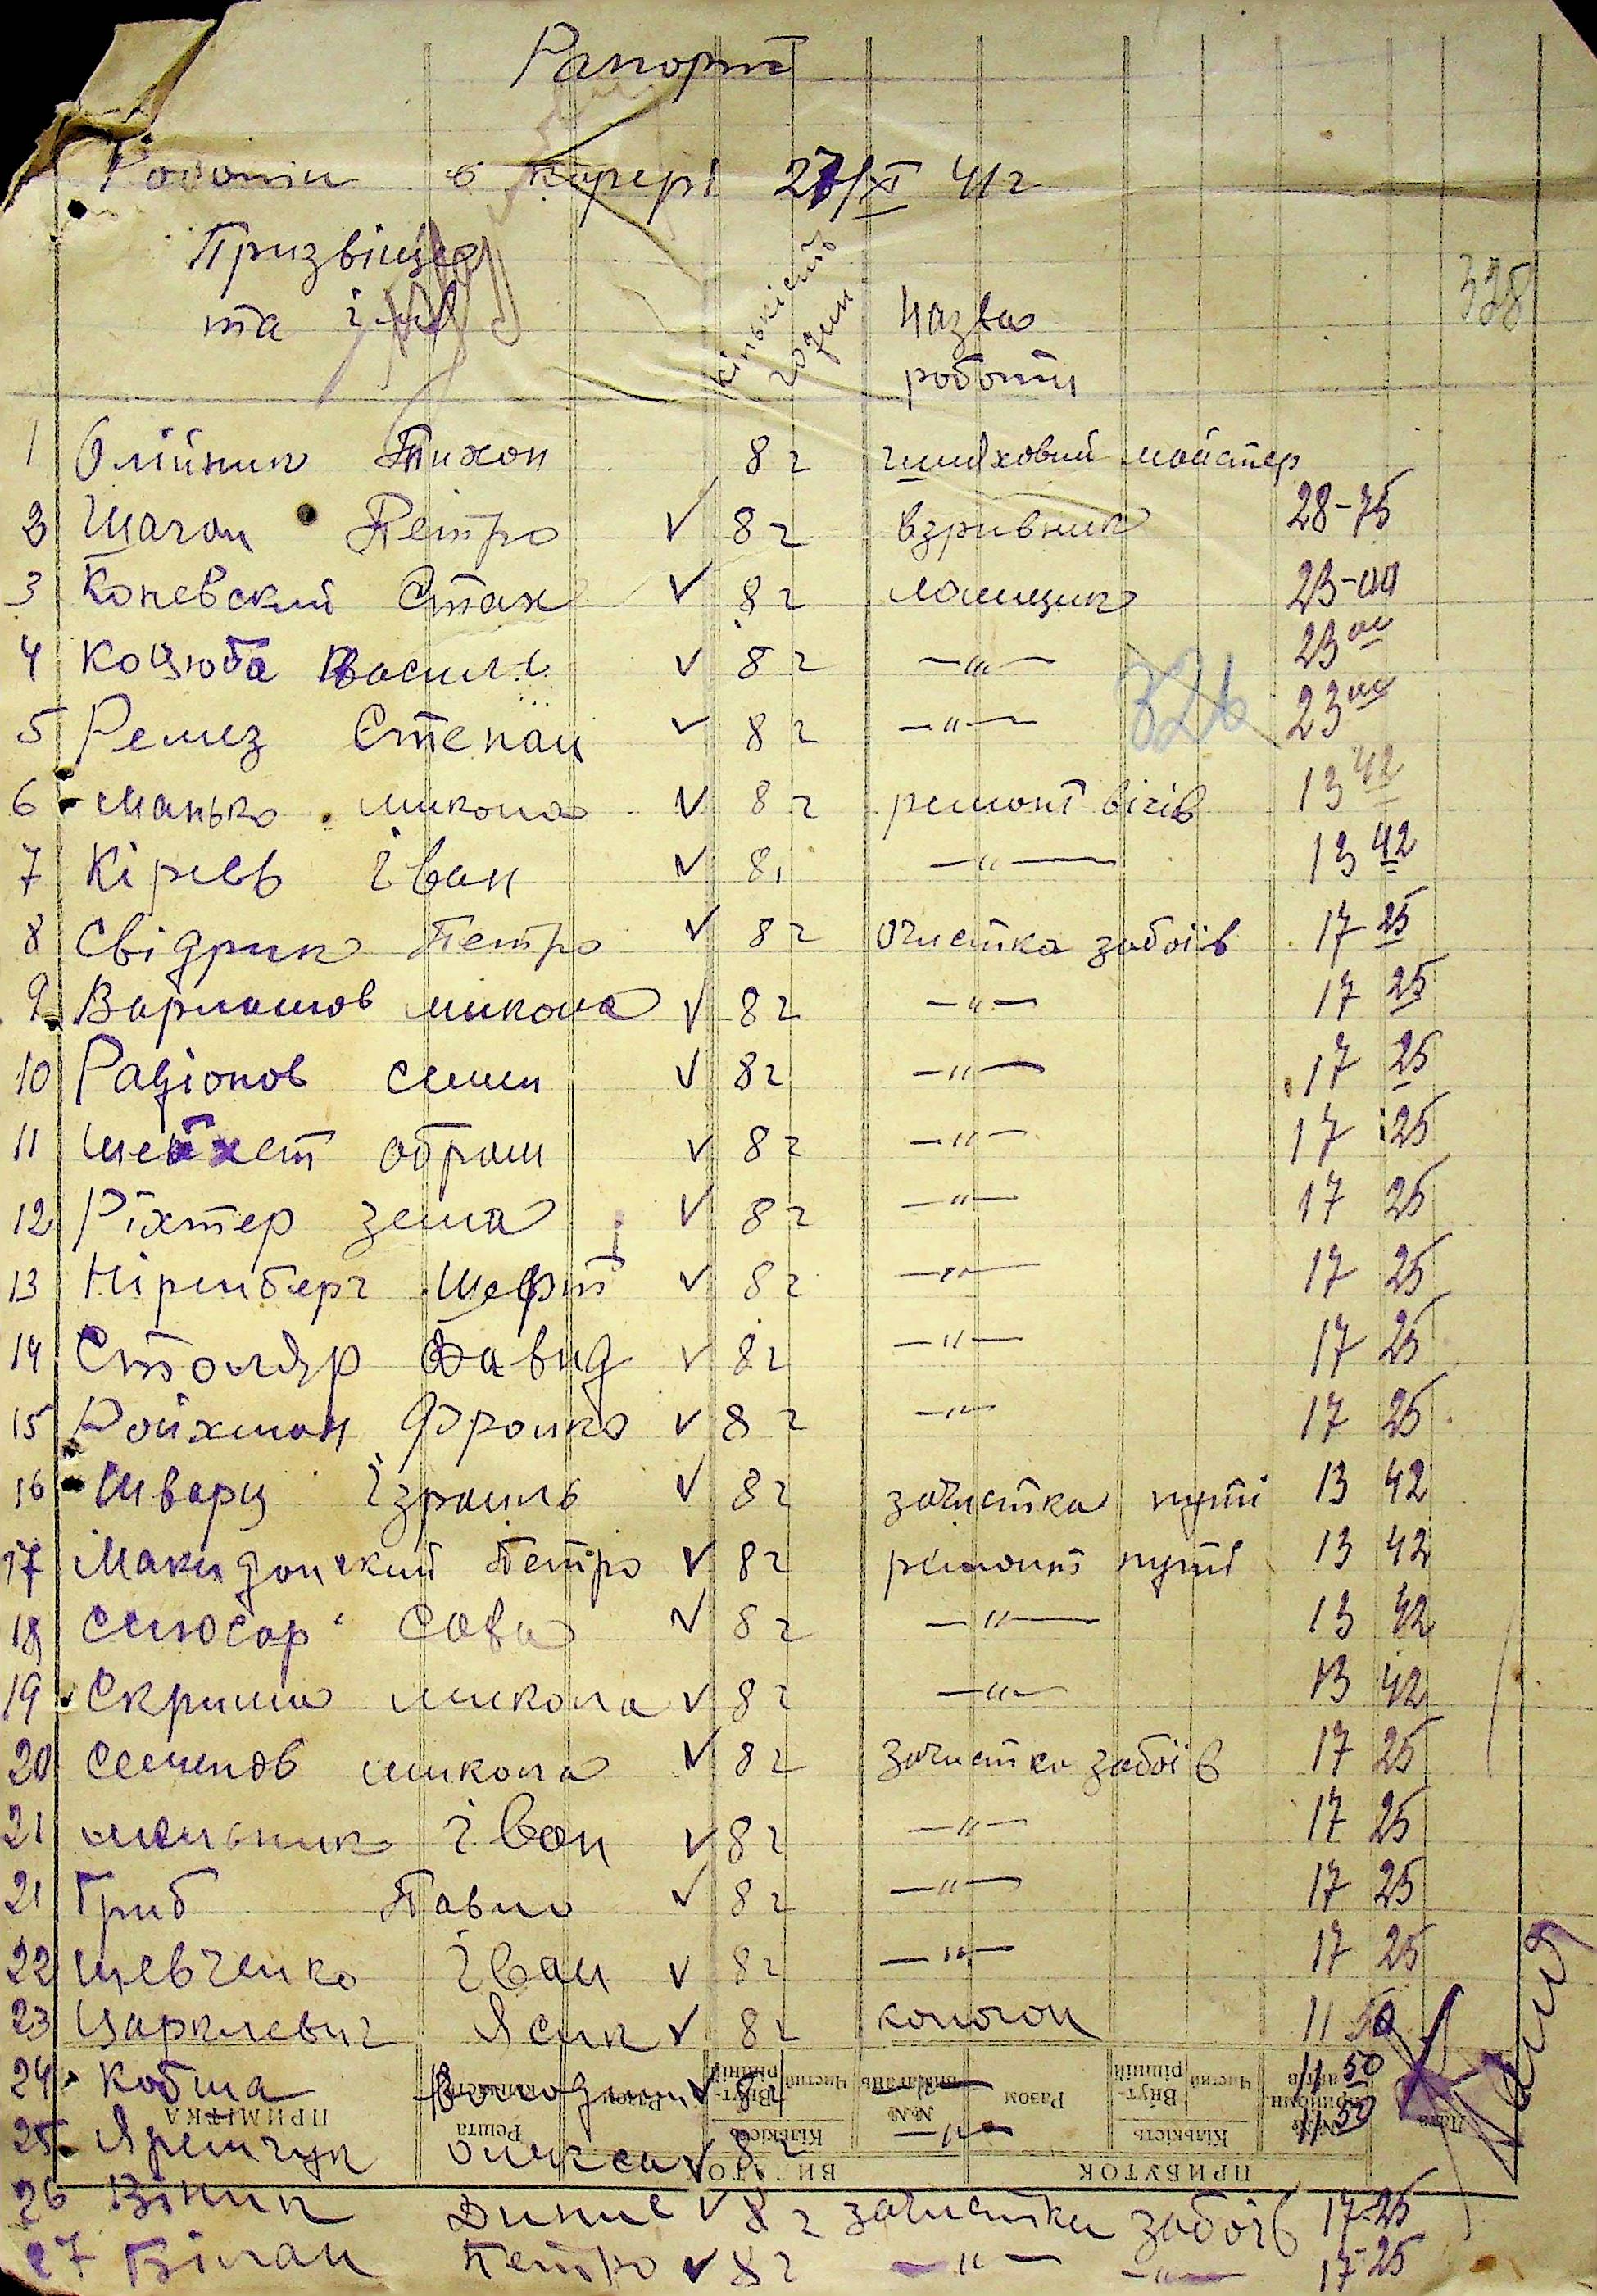 Рапорт
Роботи в карєрі 27/XI 41 г
Призвіще
та імя
кількість
годин
Назва
роботи
328
1 Олійник Тихон 8 г майстер
2 Шаган Петро ✓ 8 г взривник 28-75
3 Коневский Стах ✓ 8 г ломщик 23-00
4 Коцюба Василь ✓ 8 г —"— 23 00
326
5 Ремез Степан ✓ 8 г —"— 23 00
6 Манько микола ✓ 8 г ремонт вігів 13 42
7 Кірєєв іван ✓ 8 —"— 13 42
8 Свідрик Петро ✓ 8 г очистка забоїв 17-25
9 Варламов микола ✓ 8 г —"— 17 25
10 Радіонов семен ✓ 8 г —"— 17 25
11 Шейхет абрам ✓ 8 г —"— 17 25
12 Ріхтер зелма ✓ 8 г —"— 17 25
13 Нірмберг ✓ 8 г —"— 17 25
14 Столяр Давид ✓ 8 г —"— 17 25
15 Ройхман Фроика ✓ 8 г —"— 17 25
16 Шварц ізраиль ✓ 8 г зачистка путі 13 42
17 Макидонский Петро ✓ 8 г ремонт путі 13 42
18 Слюсар Сава ✓ 8 г —"— 13 42
19 Скрипа микола ✓ 8 г —"— 13 42
20 семенов микола ✓ 8 г зачистка забоїв 17 25
21 мельник іван ✓ 8 г —"— 17 25
21 Гриб Павло ✓ 8 г —"— 17 25
22 шевченко іван ✓ 8 г —"— 17 25
23 Царклевич Ясик ✓ 8 г коногон 11 50
24 Кобта Володими ✓ 8 —"— 11 50
25 Яремчук олекса ✓ 8 г —"— 11 50
26 Вінник Динис ✓ 8 г зачистка забоїв 17-25
27 Білан Петро ✓ 8 г —"— —"— 17-25
ПРИМІТКА
Решта
Разом
ВИДАТОК
Кількість
Внут-рішній
Чистий
№№
ПРИБУТОК
Разом
Кількість
Внут-рішній
Чистий
Дата